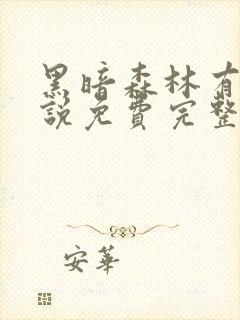 黑暗森林有
說免費完整
安華